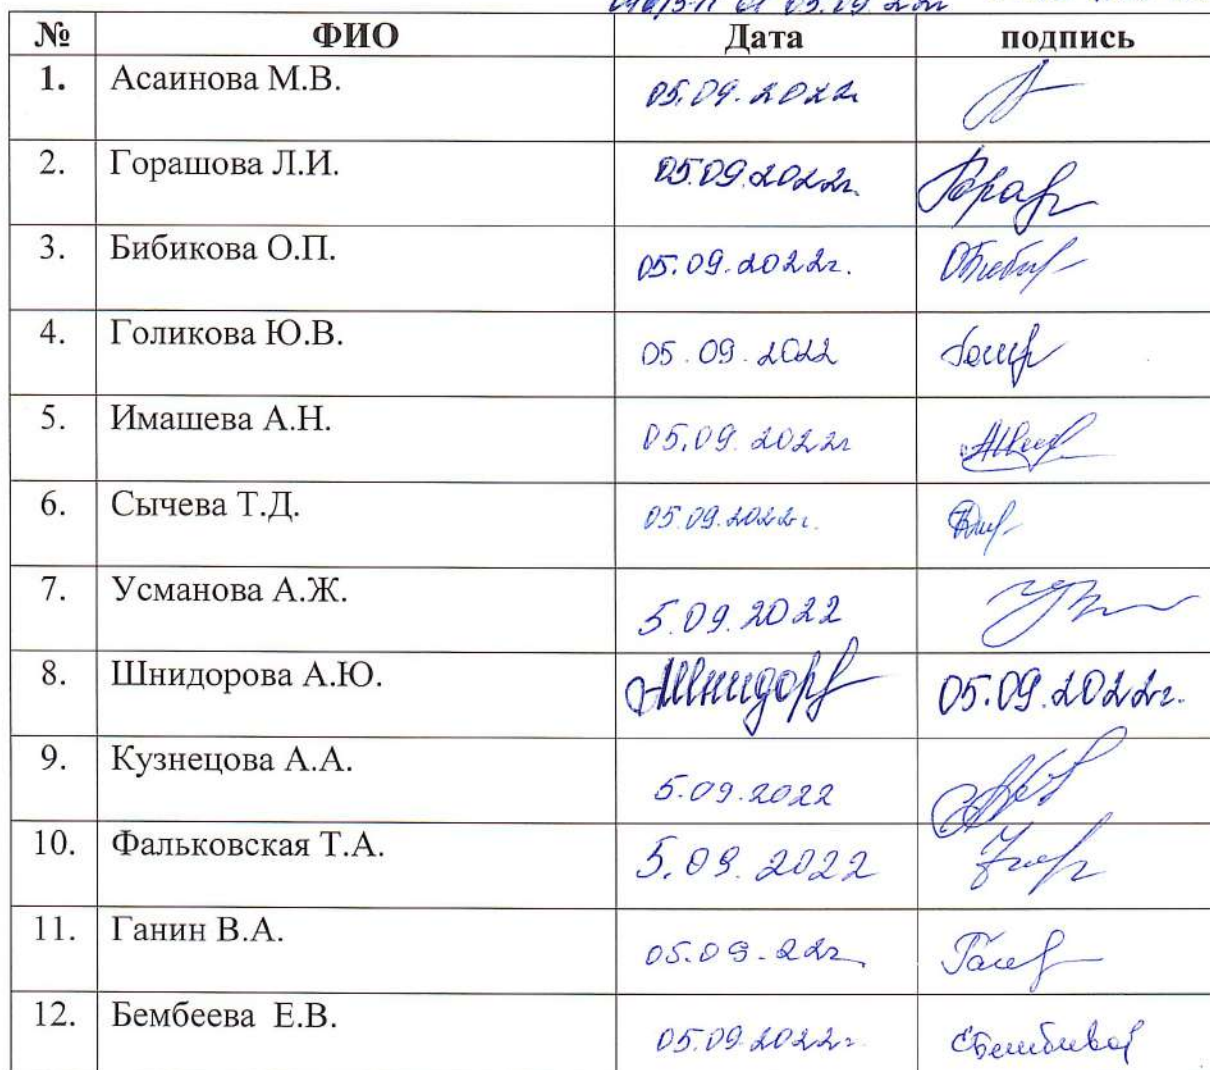 от 05.09.22г
№ ФИО Дата подпись
1. Асаинова М.В. 05.09.2022г
2. Горашова Л.И. 05.09.2022г. Гораш
3. Бибикова О.П. 05.09.2022г. ОБибик
4. Голикова Ю.В. 05.09.2022
5. Имашева А.Н. 05.09.2022г
6. Сычева Т.Д. 05.09.2022г.
7. Усманова А.Ж. 5.09.2022
8. Шнидорова А.Ю. АШнидор 05.09.2022г.
9. Кузнецова А.А. 5.09.2022
10. Фальковская Т.А. 5.09.2022
11. Ганин В.А. 05.09.22г
12. Бембеева Е.В. 05.09.2022г